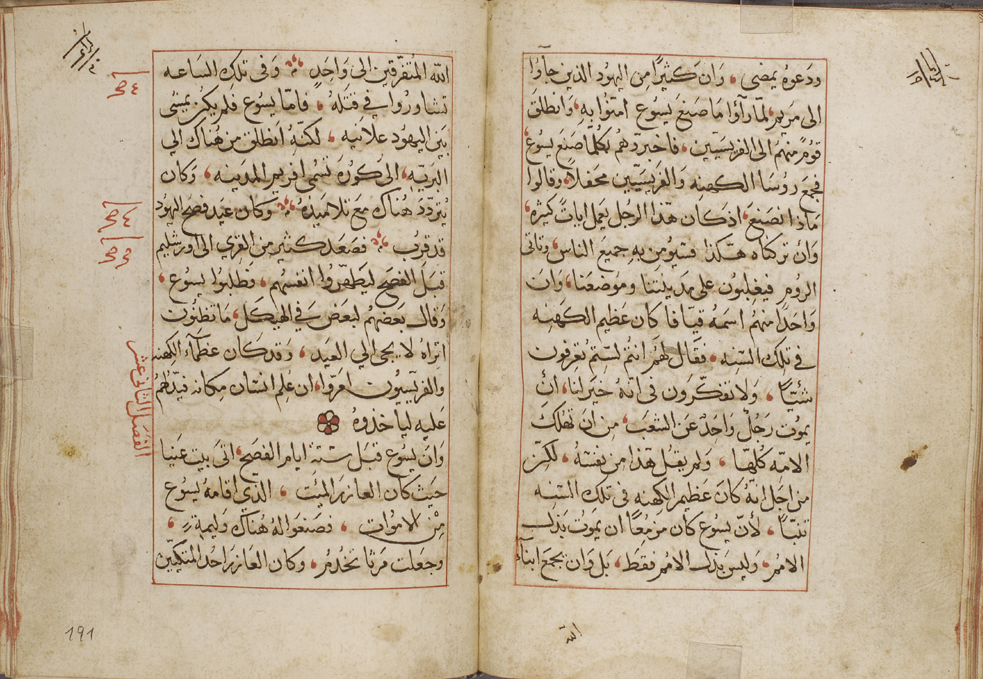 ودعوه يمضي ، وان كثيرا من اليهود الذين جاوا
الى مريم لما رآوا ما صنع يسوع امنوا به ، وانطلق
قوم منهم الى الفريسيين ، فاخبروهم بكلما صنع يسوع
فجمع روسا الكهنه والفريسيين محفلا ، وقالوا
ماذا نصنع ، اذ كان هذا الرجل يعمل ايات كثيره ،
وان تركناه هكذا فسيومن به جميع الناس ، وتاتى
الروم فيغلبون على مدينتنا وموضعنا ، وان
واحدا منهم اسمه قيافا كان عظيم الكهنه
في تلك السنه ، فقال لهم انتم لستم تعرفون
شيًا ، ولا تفكرون فى انه خير لنا ، ان
يموت رجل واحد عن الشعب ، من ان تهلك
الامه كلها ، ولم يقل هذا من نفسه ، لكن
من اجل انه كان عظيم الكهنه فى تلك السنه
تنبّا ، لأن يسوع كان مزمعا ان يموت بدل
الامم ، وليس بدل الامم فقط ، بل وان يجمع ابنآء
الله
الله المتفرقين الى واحد وفى تلك الساعه
تشاوروا في قتله ، فاما يسوع فلم يكن يمشى
بين اليهود علانيه ، لكنه انطلق من هناك الي
البريه ، الى كوره تسمى افريم المدينه ، وكان
يتردد هناك مع تلاميذه وكان عيد فصح اليهود
قد قرب فصعد كثير من القرى الى اورشليم
قبل الفصح ليطهروا انفسهم ، وطلبوا يسوع ،
وقال بعضهم لبعض في الهيكل ، ما تظنون
اتراه لا يجى الي العيد ، وقد كان عظمآء الكهنه
والفريسيون امروا ، ان علم انسان مكانه فيدلهم
عليه لياخذوه
الفصل الثاني عشر
وان يسوع قبل ستة ايام الفصح ، اتى بيت عنيا
حيث كان العازر الميت ، الذي اقامه يسوع
من الاموات ، وصنعوا له هناك وليمة ،
وجعلت مرثا تخدم ، وكان العازر احد المتكيين
191